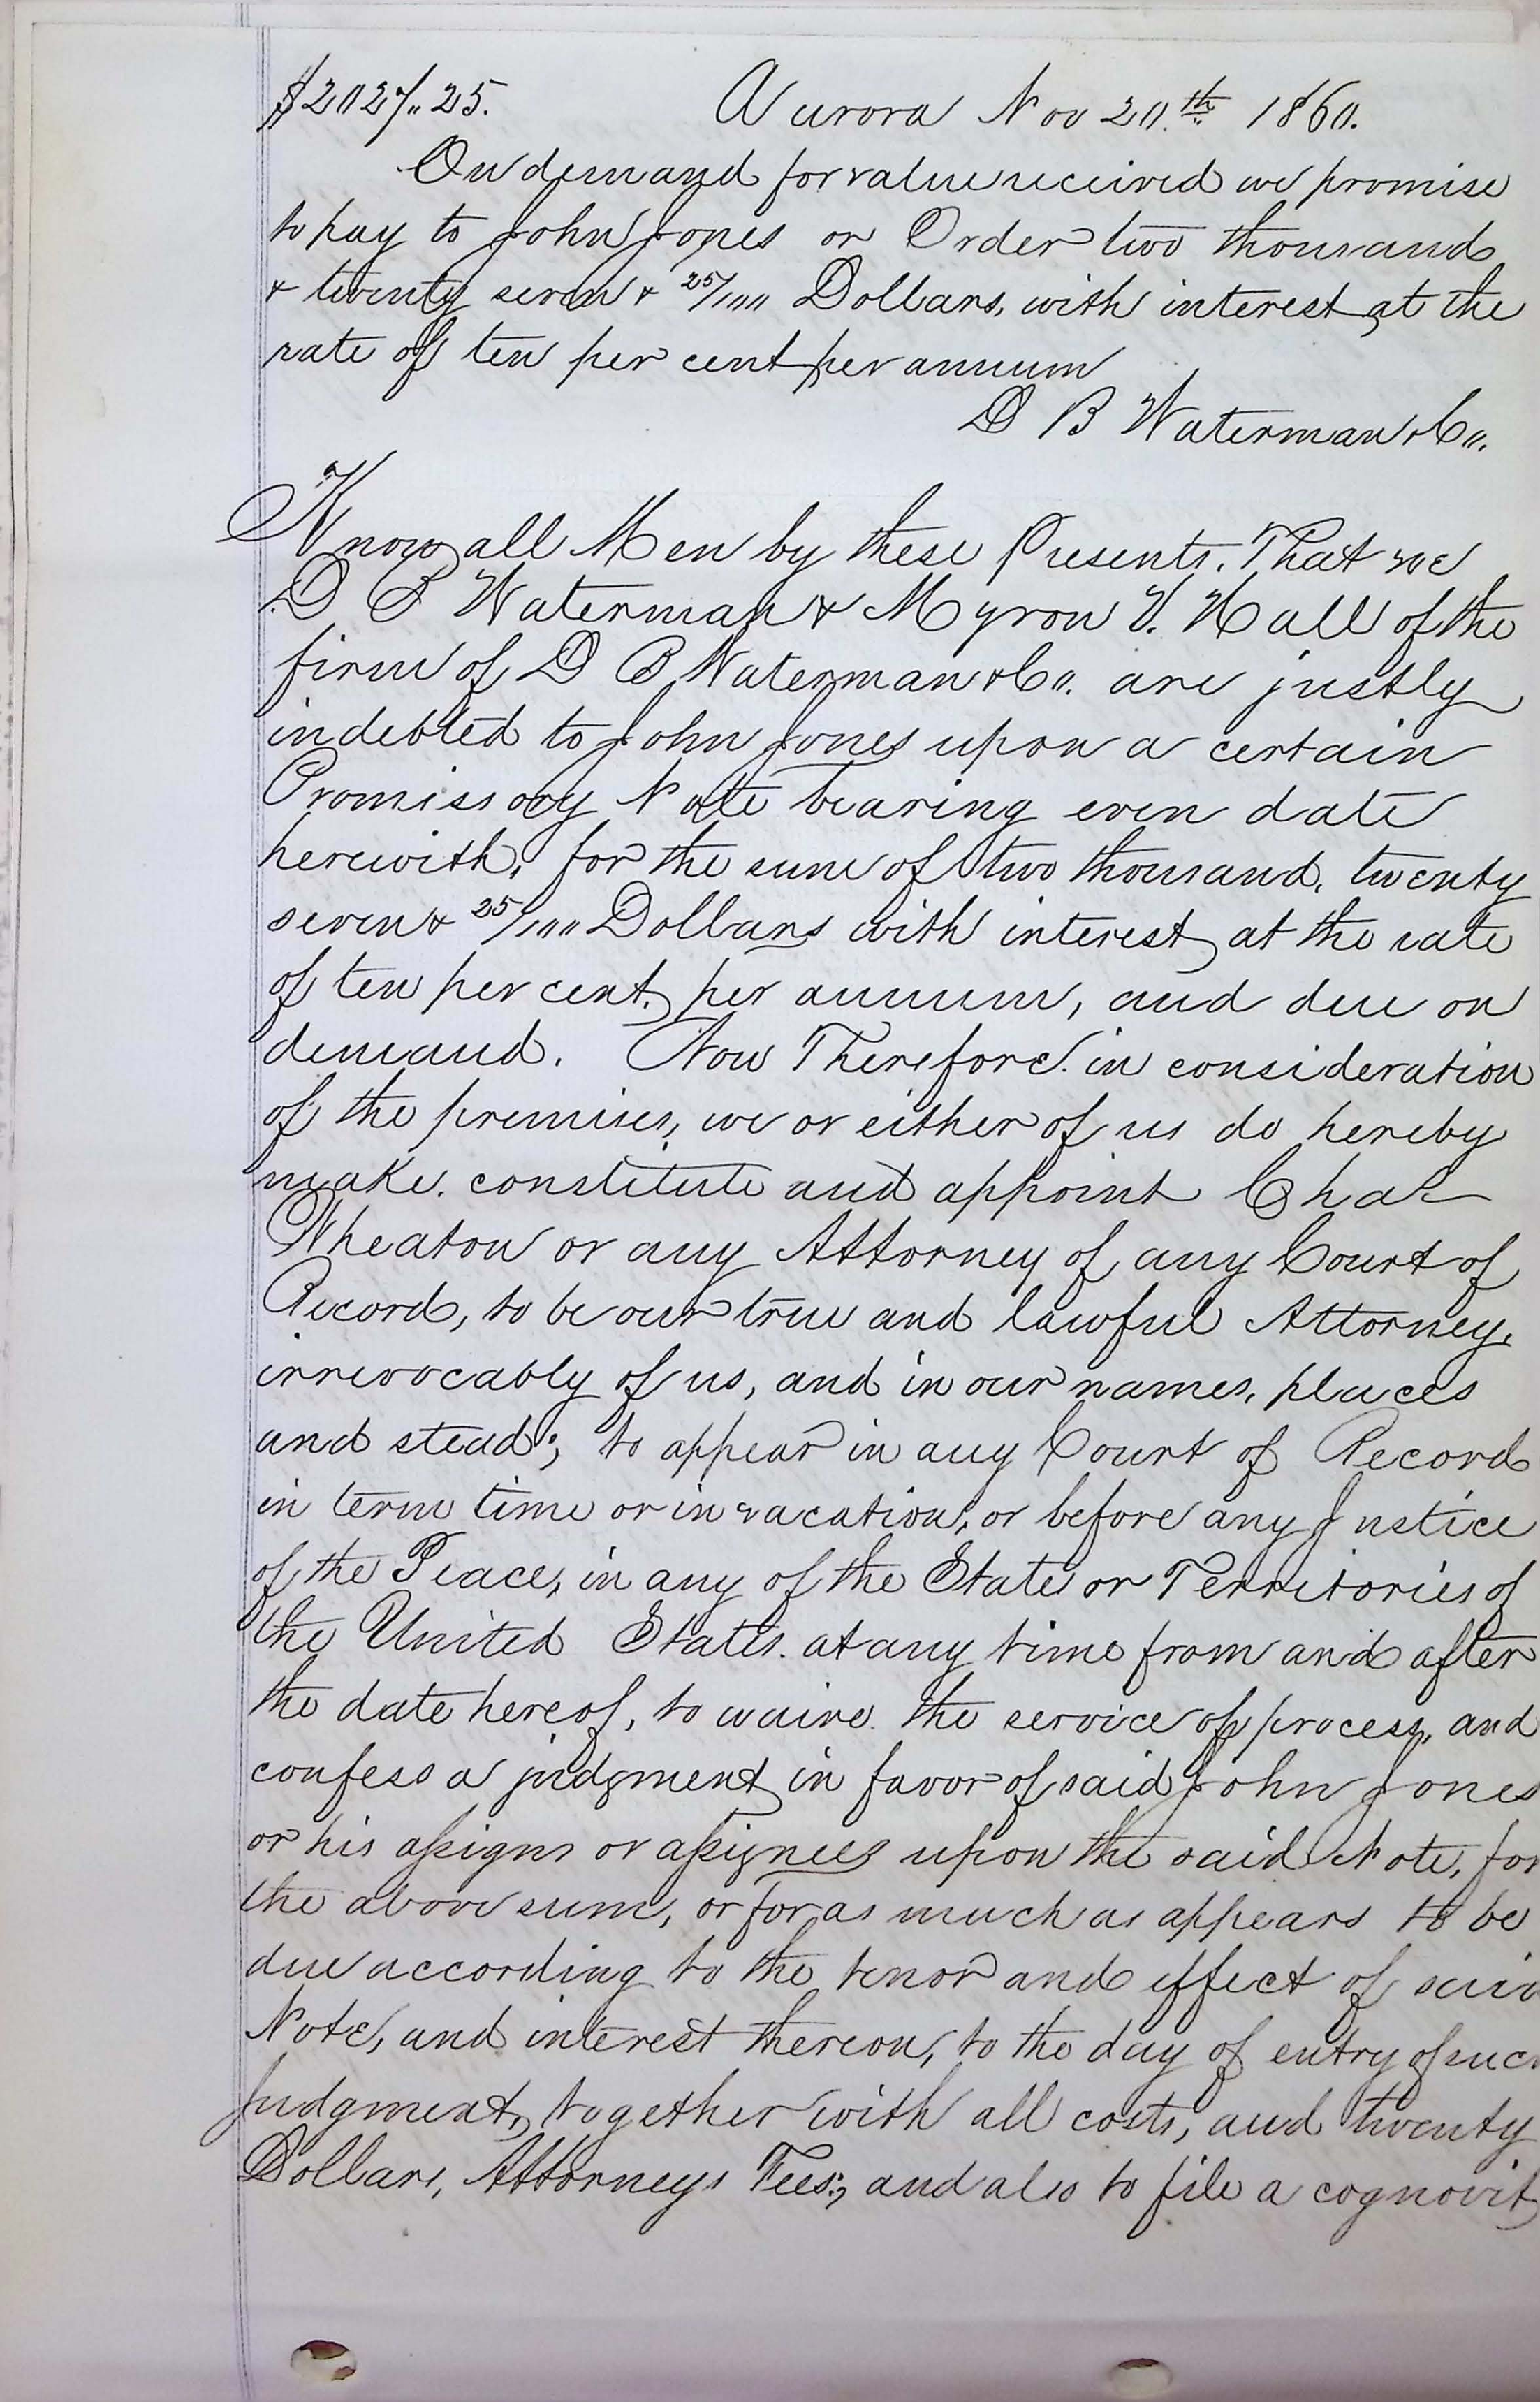 $2027.. 25. Aurora Nov 20.th 1860.
On demand for value received we promise
to pay to John Jones or Order two thousand
& twenty seven & 25/100 Dollars, with interest at the
rate of ten per cent per annum
D B Waterman & Co.
Know all Men by these Presents, That we
D B Waterman & Myron V. Hall of the
firm of D B Waterman & Co. are justly
indebted to John Jones upon a certain
Promissory Note bearing even date
herewith, for the sum of two thousand, twenty
seven & 25/100 Dollars with interest at the rate
of ten per cent. per annum, and due on
demand. Now Therefore. in consideration
of the premises, we or either of us do hereby
make. constitute and appoint Chas
Wheaton or any Attorney of any Court of
Record, to be our true and lawful Attorney,
irrevocably of us, and in our names, places
and stead; to appear in any Court of Record
in term time or in vacation, or before any Justice
of the Peace, in any of the States or Territories of
the United States. at any time from and after
the date hereof, to waive the service of process, and
confess a judgment in favor of said John Jones
or his assigns or assignees upon the said Note, for
the above sum, or for as much as appears to be
due according to the tenor and effect of said
Note, and interest thereon, to the day of entry of such
Judgment, together with all costs, and twenty
Dollars, Attorneys Fees; and also to file a cognovit